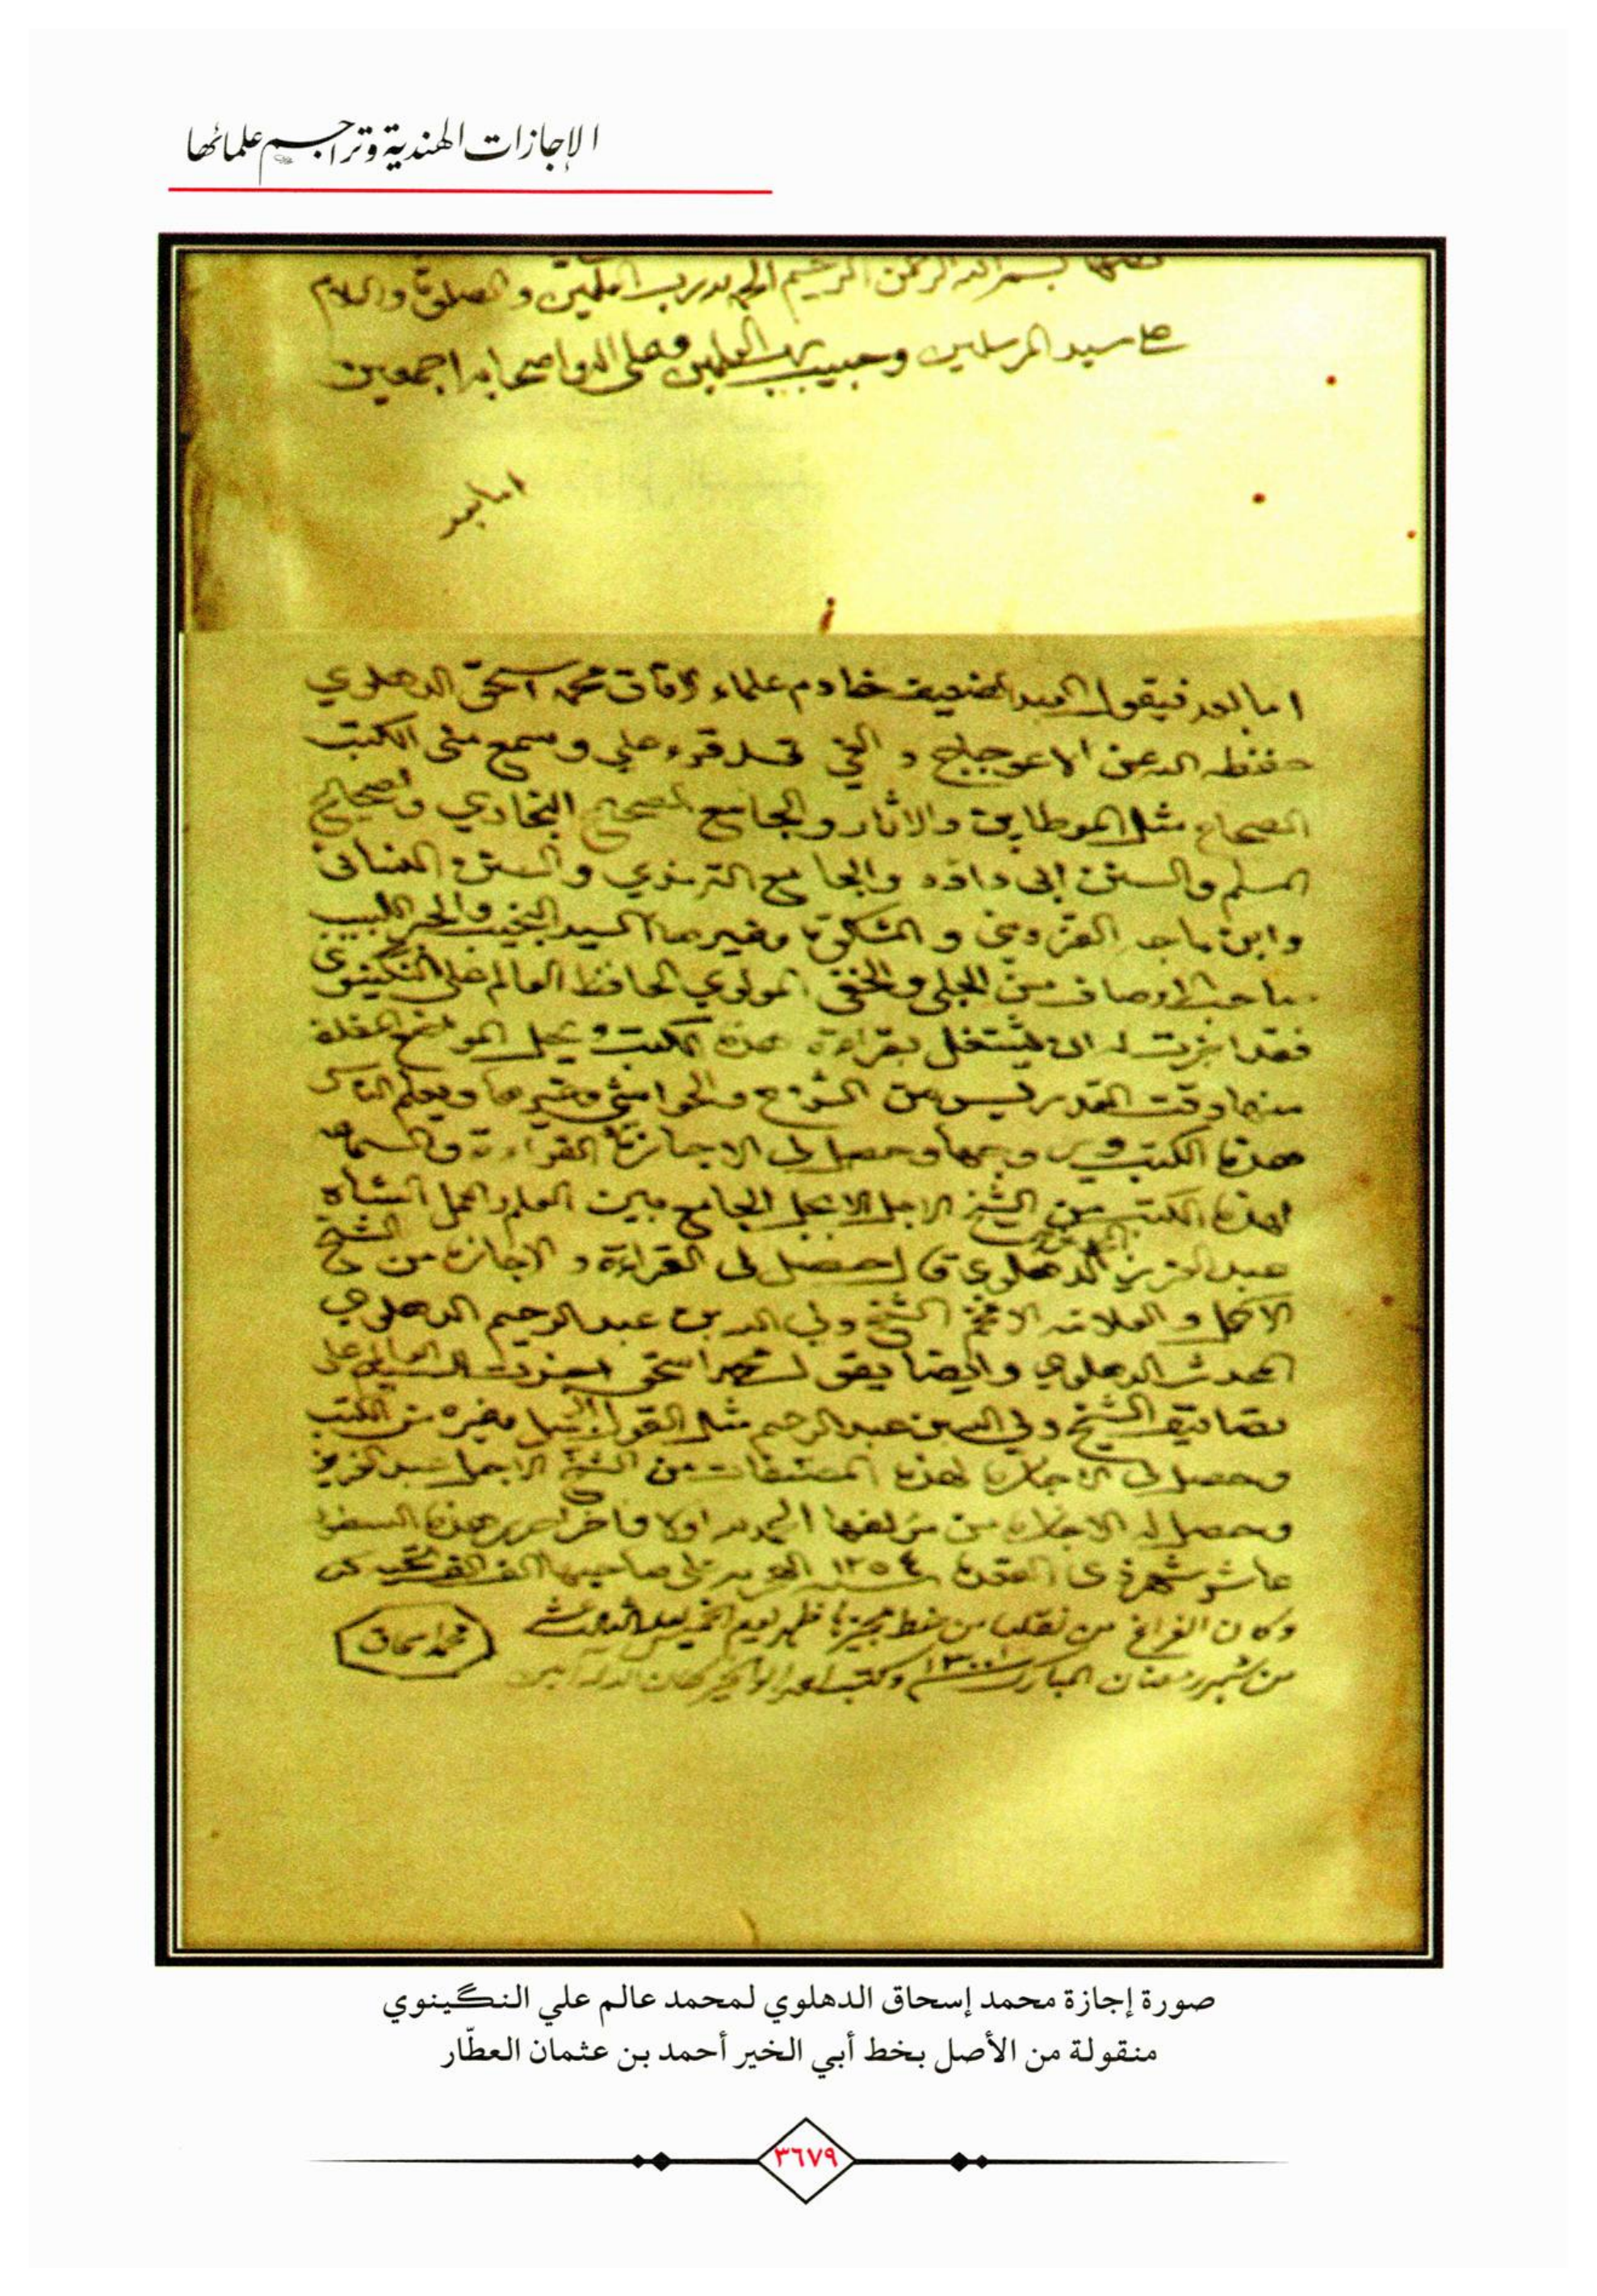 الإجازات الهندية وتراجم علمائها
بسم الله الرحمن الرحيم الحمد لله رب العلمين والصلوة والسلام
على سيد المرسلين وحبيب رب العلمين وعلى اله واصحابه اجمعين
اما بعد
اما بعد فيقول العبد الضعيف خادم علماء الافاق محمد اسحق الدهلوي
حفظه الله عن الاعوجاج و قد قرء علي وسمع مني الكتب
الصحاح مثل الموطاين والاثار والجامع الصحيح البخاري والصحيح
المسلم والسنن ابي داود والجامع الترمذي والسنن النسائي
وابن ماجه القزويني و المشكوة وغيرها السيد النجيب والحبر اللبيب
صاحب الاوصاف من الجلي والخفي المولوي الحافظ العالم علي النكينوي
فقد اجزت له ان يشتغل بقراءة هذه الكتب و يحل المواضع المغلقة
منها وقت التدريس من الشروح والحواشي وغيرها ويعلم الناس
هذه الكتب وحصل لي الاجازة القراءة والسماعة
لهذه الكتب من الشيخ الاجل الاكمل الجامع بين العلم والعمل الشاه
عبد العزيز الدهلوي حصل لي القراءة و الاجازة من الشيخ
الاكمل و العلامة الافخم الشيخ ولي الله بن عبد الرحيم الدهلوي
المحدث الدهلوي وايضا يقول محمد اسحق اجزت السيد العالم علي
تصانيف الشيخ ولي الله بن عبد الرحيم مثل القول الجميل وغيره من الكتب
وحصل لي الاجازة لهذه المصنفات من الشيخ الاجل عبد العزيز
وحصل له الاجازة من مؤلفها الحمد لله اولا واخرا حرر هذه السطور
عاشر شهر ذي القعدة سنة ١٢٥٤ الهجرية على صاحبها الف الف
وكان الفراغ من نقلها من خط مجيزها ظهر يوم الخميس
من شهر رمضان المبارك سنة ١٣٠٠ وكتبه احمد ابو الخير كان الله له آمين
محمد اسحاق
صورة إجازة محمد إسحاق الدهلوي لمحمد عالم علي النگينوي
منقولة من الأصل بخط أبي الخير أحمد بن عثمان العطّار
٣٦٧٩